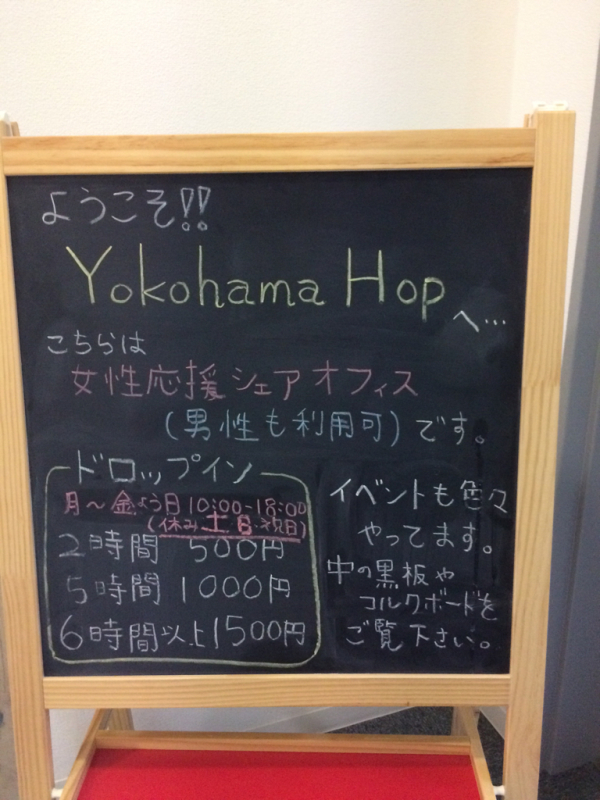 ようこそ!!
Yokohama Hop
へ…
こちらは
女性応援シェアオフィス
(男性も利用可)です。
ドロップイン
月〜金よう日10:00-18:00
(休み土日・祝日)
2時間 500円
5時間 1000円
6時間以上1500円
イベントも色々
やってます。
中の黒板や
コルクボードを
ご覧下さい。